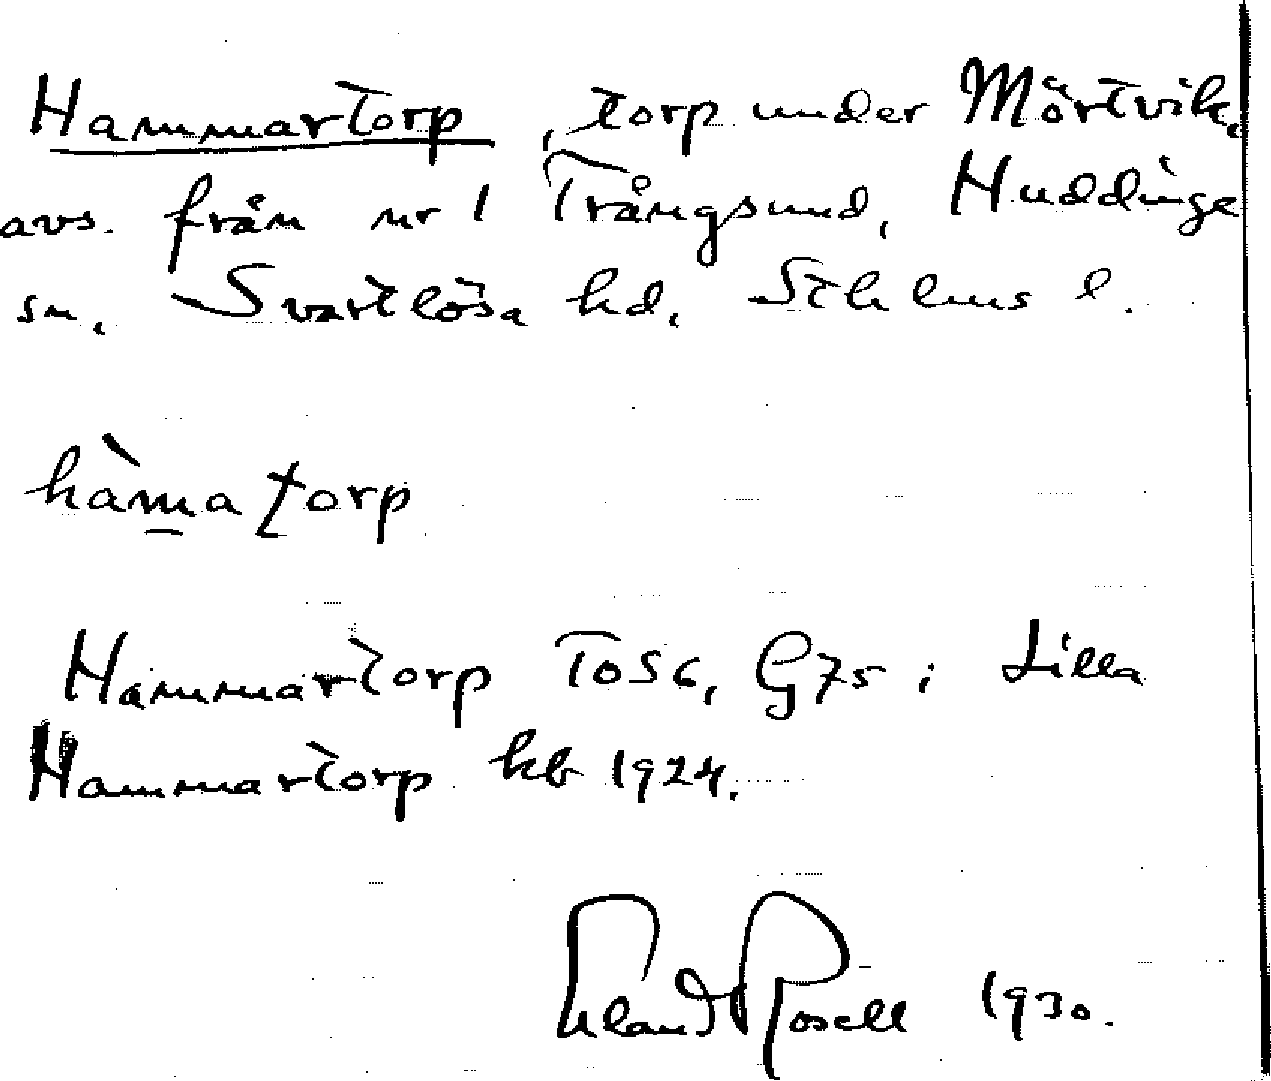 Hammartorp, torp under Mörtvik,
avs. från nr 1 Trångsund, Huddinge
sn, Svartlösa hd, Sthlms l.
hàmatorp
Hammartorp To56, G75; Lilla
Hammartorp kb 1924.
Erland Rosell 1930.